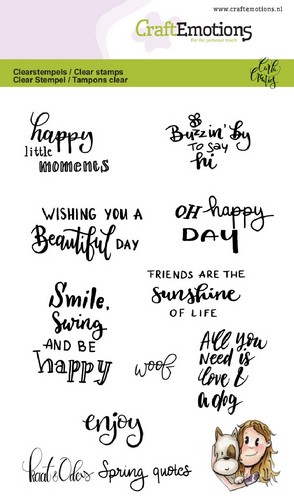 www.craftemotions.nl
CraftEmotions
For the personal touch
Clearstempels / Clear stamps
Clear Stempel / Tampons clear
happy
little
moments
Buzzin' by
to say
hi
WISHING YOU A
Beautiful DAY
OH happy
DAY
FRIENDS ARE THE
Sunshine
OF LIFE
Smile,
Swing
AND BE
happy
woof
All you
need is
love &
a dog
enjoy
Spring quotes